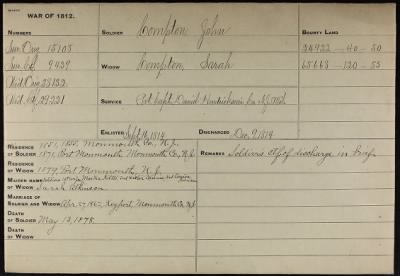 WAR OF 1812.
NUMBERS
SOLDIER Compton, John
BOUNTY LAND
Sur. Orig. 15105
34922-40-50
Sur. Ctf. 9439
WIDOW Compton, Sarah
65668-120-55
Wid. Orig. 28132
Wid. Ctf. 29221
SERVICE Pvt. Capt. David Co. N.J. Mil.
ENLISTED Sept. 16, 1814
DISCHARGED Dec. 9, 1814
RESIDENCE OF SOLDIER 1851, 1855, Monmouth Co., N.J.
1871, Port Monmouth, Monmouth Co., N.J.
REMARKS Soldier's ctf. of discharge in
RESIDENCE OF WIDOW 1879, Port Monmouth, N.J.
MAIDEN NAME OF WIDOW
Sarah
MARRIAGE OF SOLDIER AND WIDOW Keyport, Monmouth Co., N.J.
DEATH OF SOLDIER May 12, 1878.
DEATH OF WIDOW